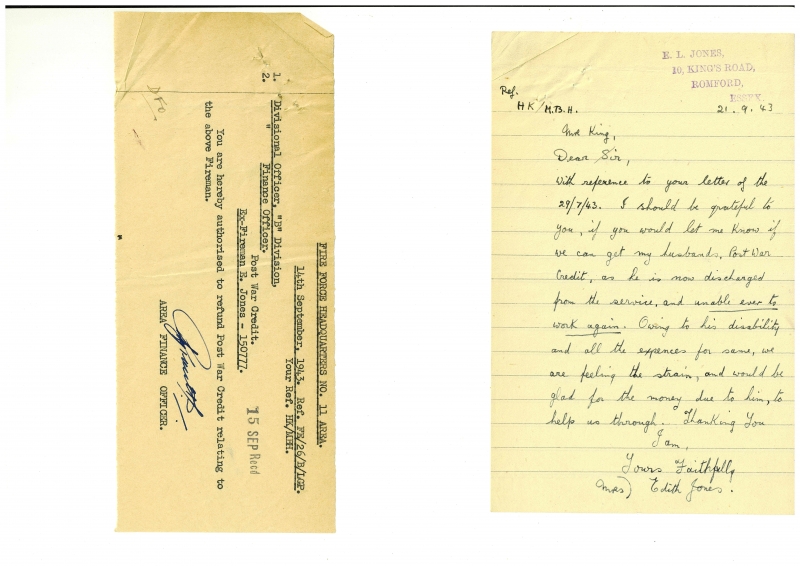 FIRE FORCE HEADQUARTERS NO. 11 AREA.
14th September, 1943. Ref. FE/26/B/LGP.
Your Ref. HK/MBH.
1. "Divisional Officer, "B" Division,
2. " Finance Officer.
Post War Credit.
Ex-Fireman E. Jones - 150777.
You are hereby authorised to refund Post War Credit relating to
the above Fireman.
AREA FINANCE OFFICER.
15 SEP Recd
DFO
E. L. JONES,
10, KING'S ROAD,
ROMFORD,
ESSEX.
Ref.
HK/M.B.H.
21.9.43
Mr King,
Dear Sir,
With reference to your letter of the
29/7/43. I should be grateful to
you, if you would let me know if
we can get my husbands, Post War
Credit, as he is now discharged
from the service, and unable ever to
work again. Owing to his disability
and all the expences for same, we
are feeling the strain, and would be
glad for the money due to him, to
help us through. Thanking You
I am,
Yours Faithfully
Mrs) Edith Jones.